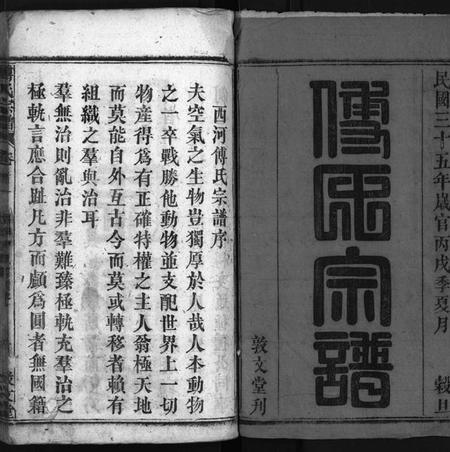 民國三十五年歲官丙戌季夏月 穀旦
傅氏宗譜
敦文堂刊
西河傅氏宗譜序
夫空氣之生物豈獨厚於人哉人本動物
之一卒戰勝他動物並支配世界上一切
物產得為有正確特權之主人翁極天地
而莫能自外亙古今而莫或轉移者賴有
組織之羣與治耳
羣無治則亂治非羣難臻極軌充羣治之
極軌言應合趾凡方而顱為圓者無國籍
傅氏宗譜 卷
敦文堂